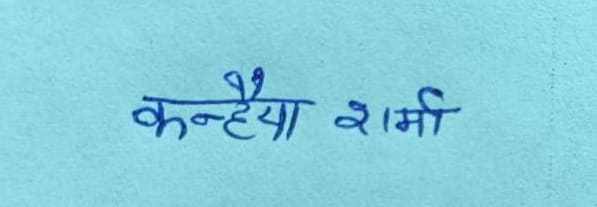 कन्हैया शर्मा